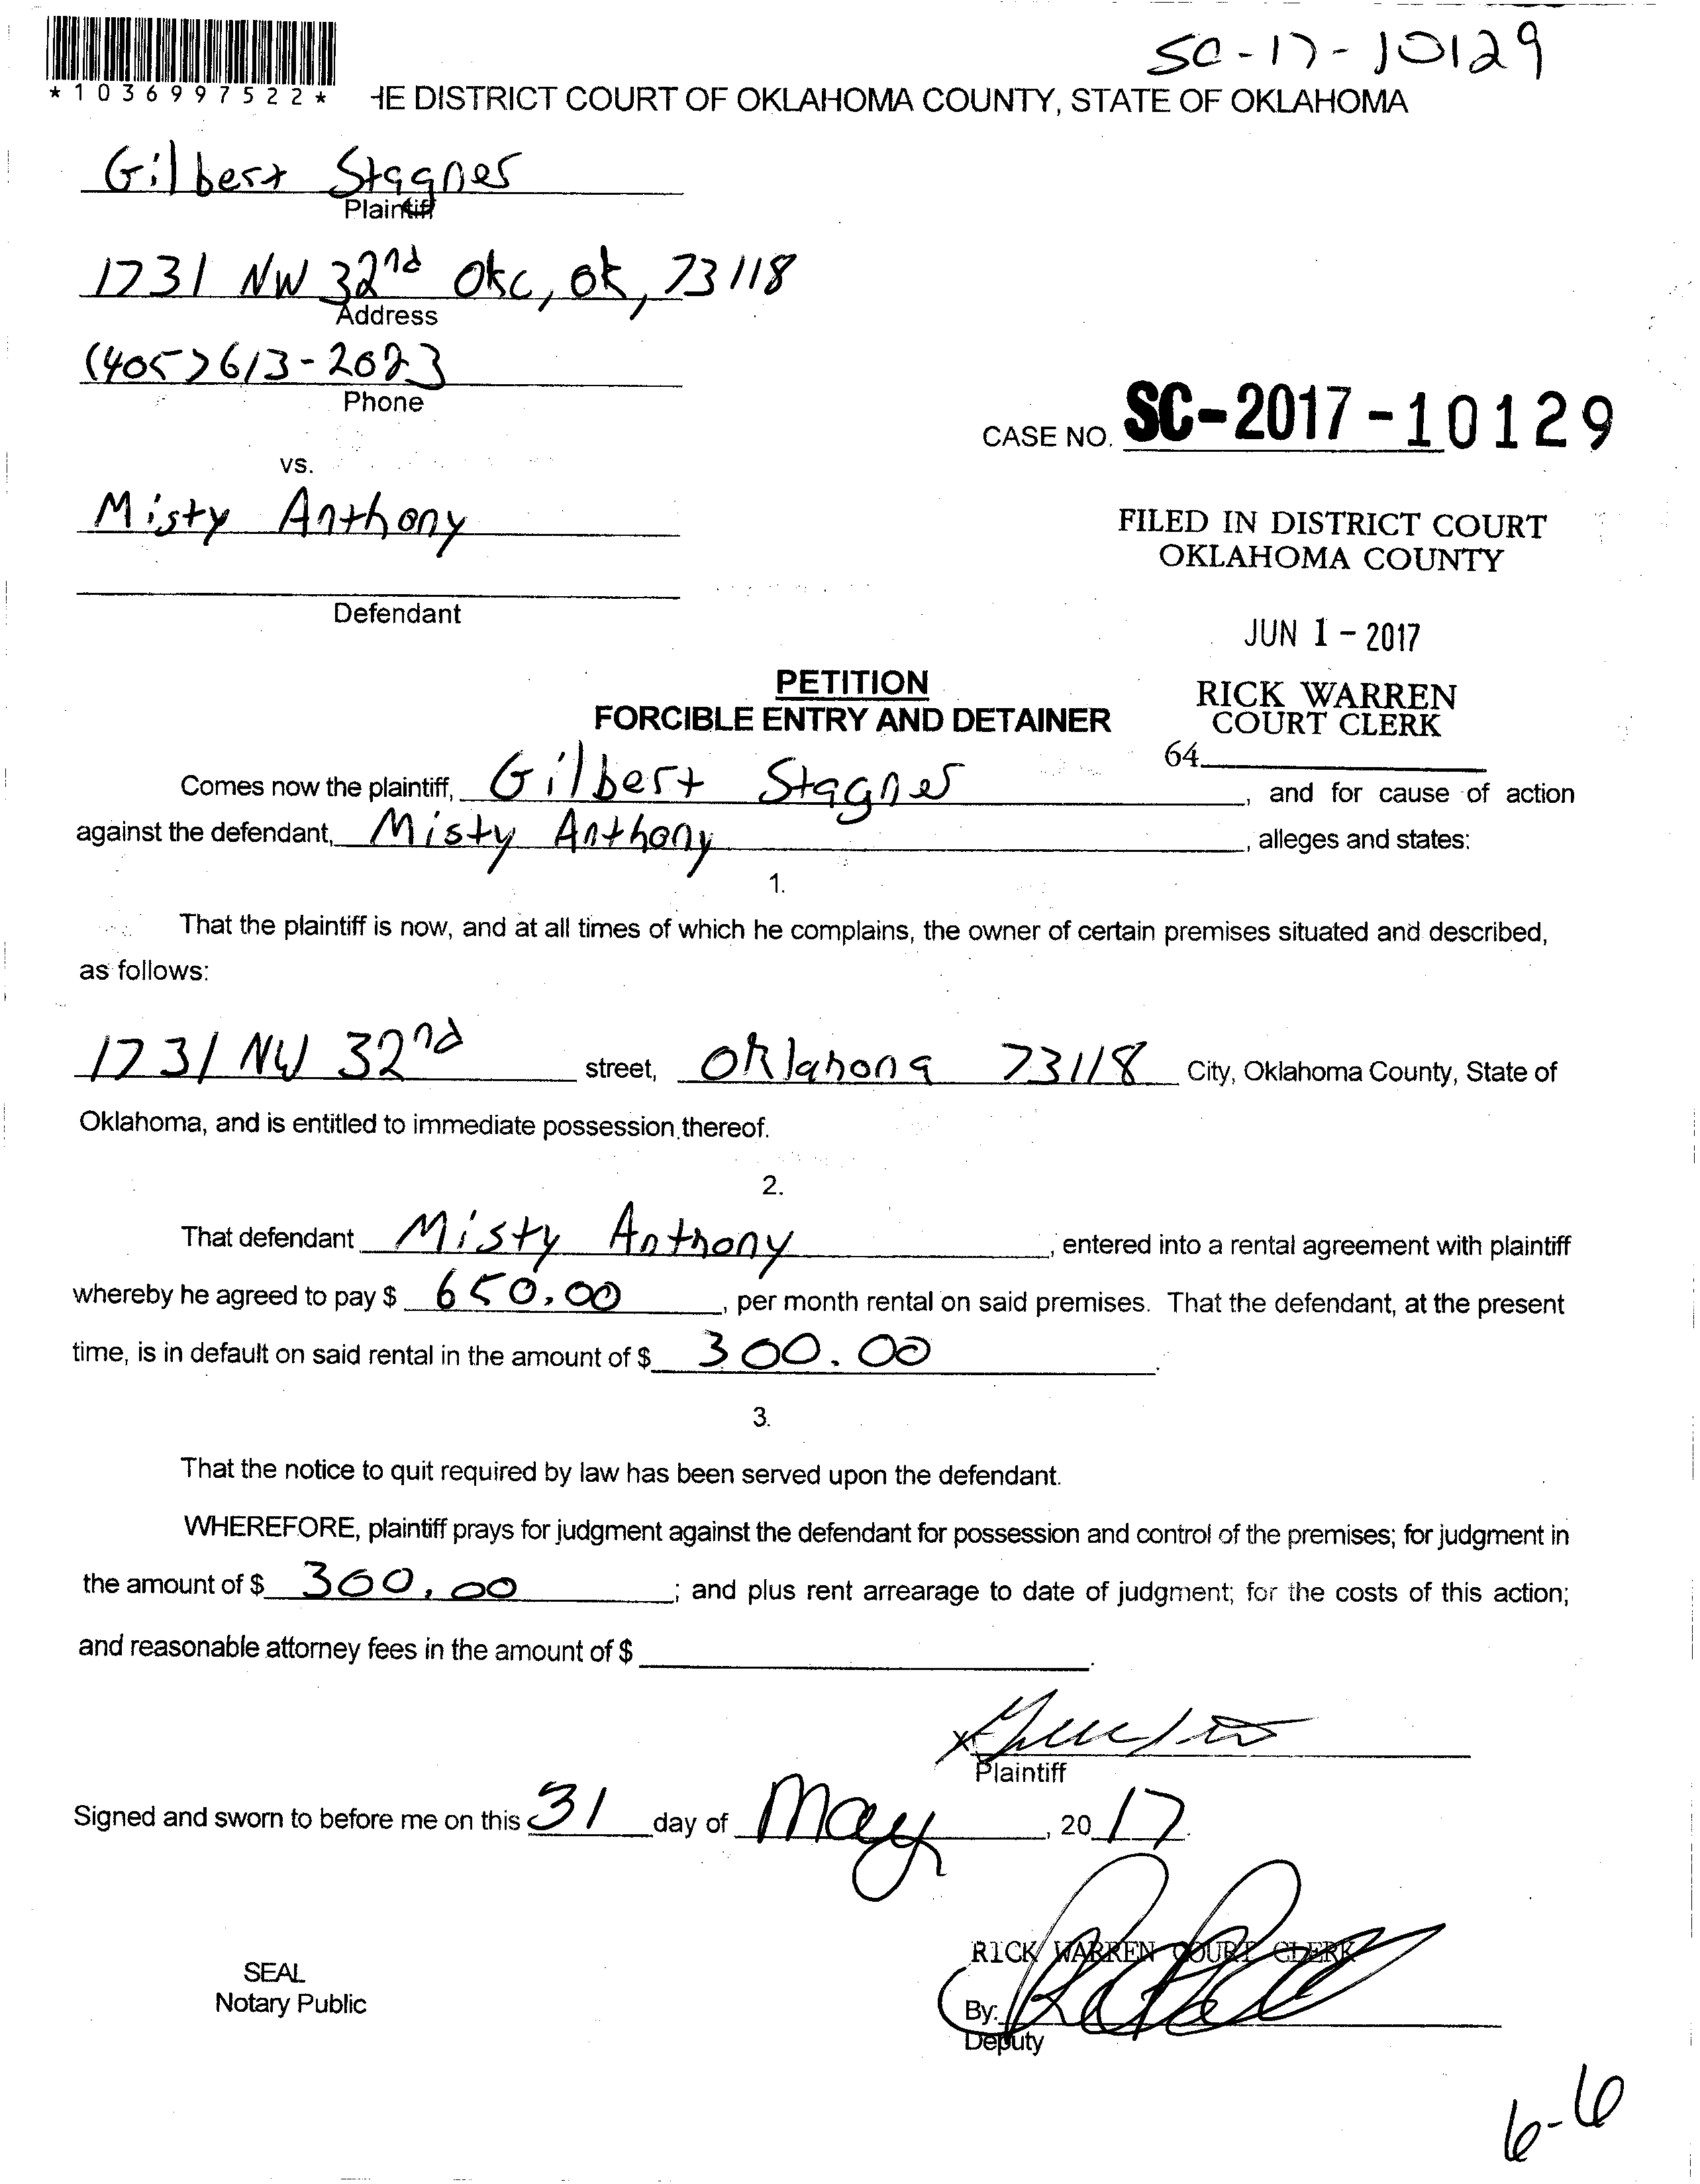 SC-17-10129
*1036997522* HE DISTRICT COURT OF OKLAHOMA COUNTY, STATE OF OKLAHOMA
Gilbert Stagner
Plaintiff
1731 NW 32nd Okc, ok, 73118
Address
(405) 613-2023
Phone
CASE NO. SC-2017-10129
vs.
Misty Anthony
Defendant
FILED IN DISTRICT COURT
OKLAHOMA COUNTY
JUN 1 - 2017
RICK WARREN
COURT CLERK
64
PETITION
FORCIBLE ENTRY AND DETAINER
Comes now the plaintiff, Gilbert Stagner, and for cause of action
against the defendant, Misty Anthony, alleges and states:
1.
That the plaintiff is now, and at all times of which he complains, the owner of certain premises situated and described,
as follows:
1731 NW 32nd street, Oklahoma 73118 City, Oklahoma County, State of
Oklahoma, and is entitled to immediate possession thereof.
2.
That defendant Misty Anthony, entered into a rental agreement with plaintiff
whereby he agreed to pay $ 650.00, per month rental on said premises. That the defendant, at the present
time, is in default on said rental in the amount of $ 300.00.
3.
That the notice to quit required by law has been served upon the defendant.
WHEREFORE, plaintiff prays for judgment against the defendant for possession and control of the premises; for judgment in
the amount of $ 300.00; and plus rent arrearage to date of judgment; for the costs of this action;
and reasonable attorney fees in the amount of $ .
X
Plaintiff
Signed and sworn to before me on this 31 day of May, 20 17.
RICK WARREN COURT CLERK
SEAL
Notary Public
By:
Deputy
6-6